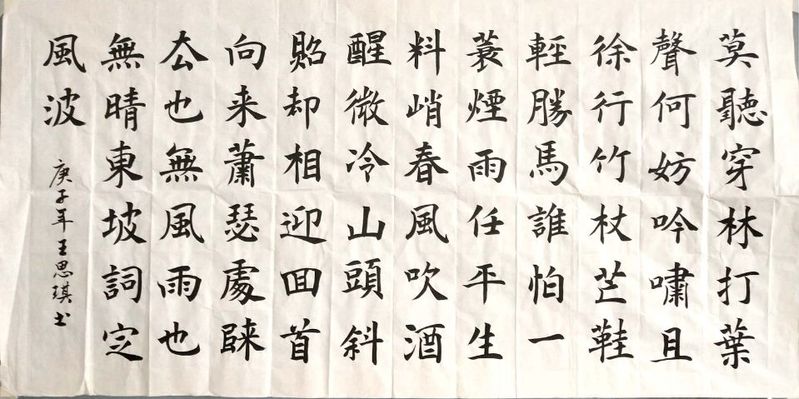 莫聽穿林打葉
聲何妨吟嘯且
徐行竹杖芒鞋
輕勝馬誰怕一
蓑煙雨任平生
料峭春風吹酒
醒微冷山頭斜
照却相迎囬首
向来蕭瑟處歸
厺也無風雨也
無晴東坡詞定
風波
庚子年王思琪书